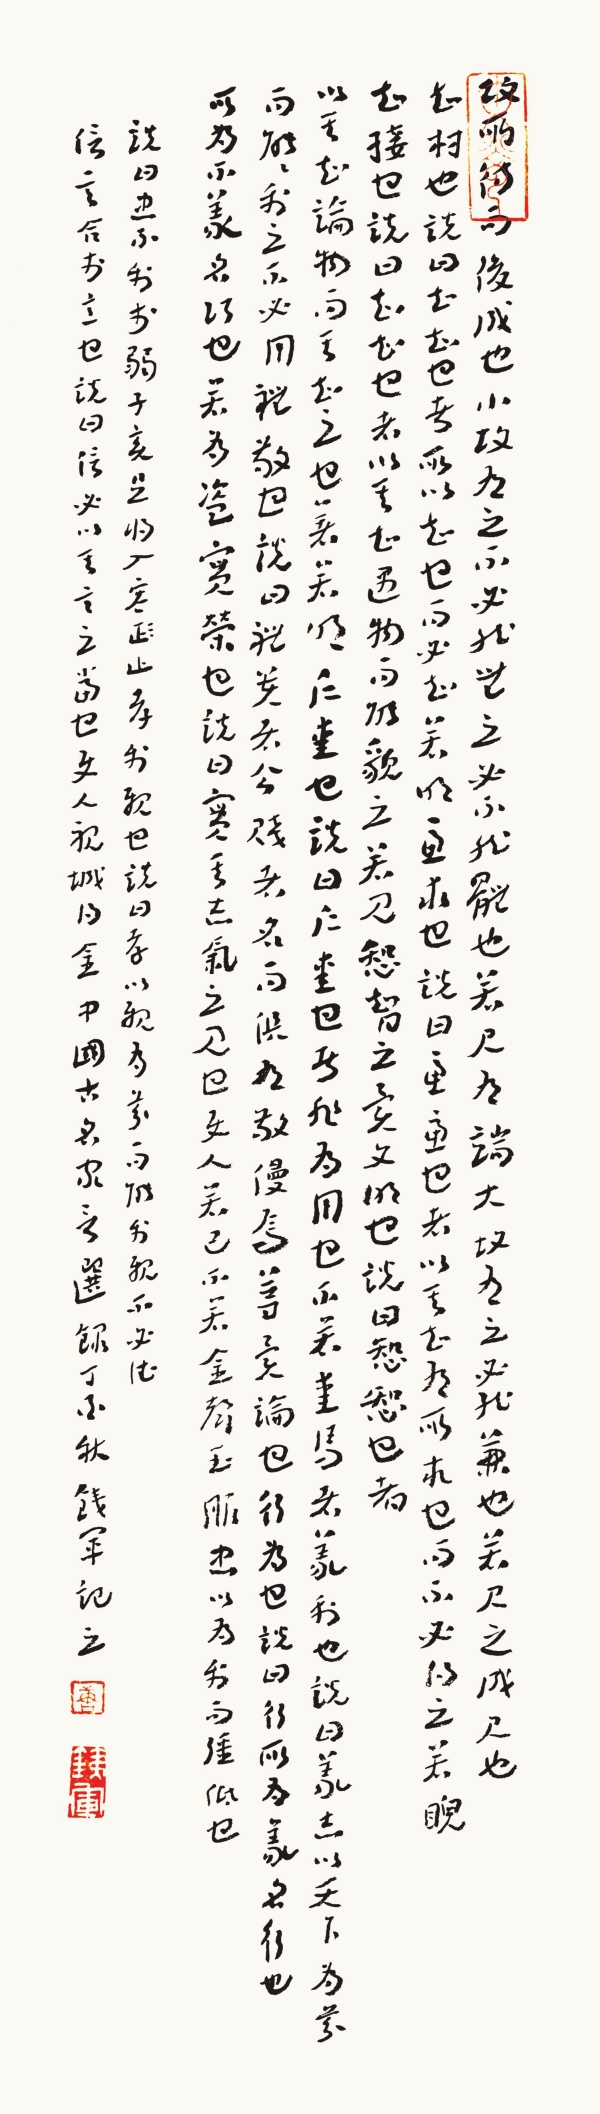 故所得而後成也小故有之不必然無之必不然體也若尺有端大故有之必然兼也若尺之成尺也
知材也說曰知知也者所以知也而必知若明慮求也說曰慮慮也者以其知有所求也而不必得之若睨
知接也說曰知知也者以其知遇物而能貌之若見恕智之意文明也說曰恕恕也者
以其知論物而其知之也著若明仁愛也說曰仁愛也者非為用也不若愛馬者義利也說曰義志以天下為芬
而能能利之不必用禮敬也說曰禮美者公賤者名而俱有敬僈焉等異論也行為也說曰行所為義名行也
所為不義名巧也若為盜實榮也說曰實其志氣之見也使人若己不若金聲玉服忠以為利而強低也
說曰忠不利於弱子亥足將入寒正止孝利親也說曰孝以親為芬而能利親不必德
信言合於言也說曰信必以其言之當也使人視城得金中國古名家言選錄丁酉秋錢軍記之
錢軍